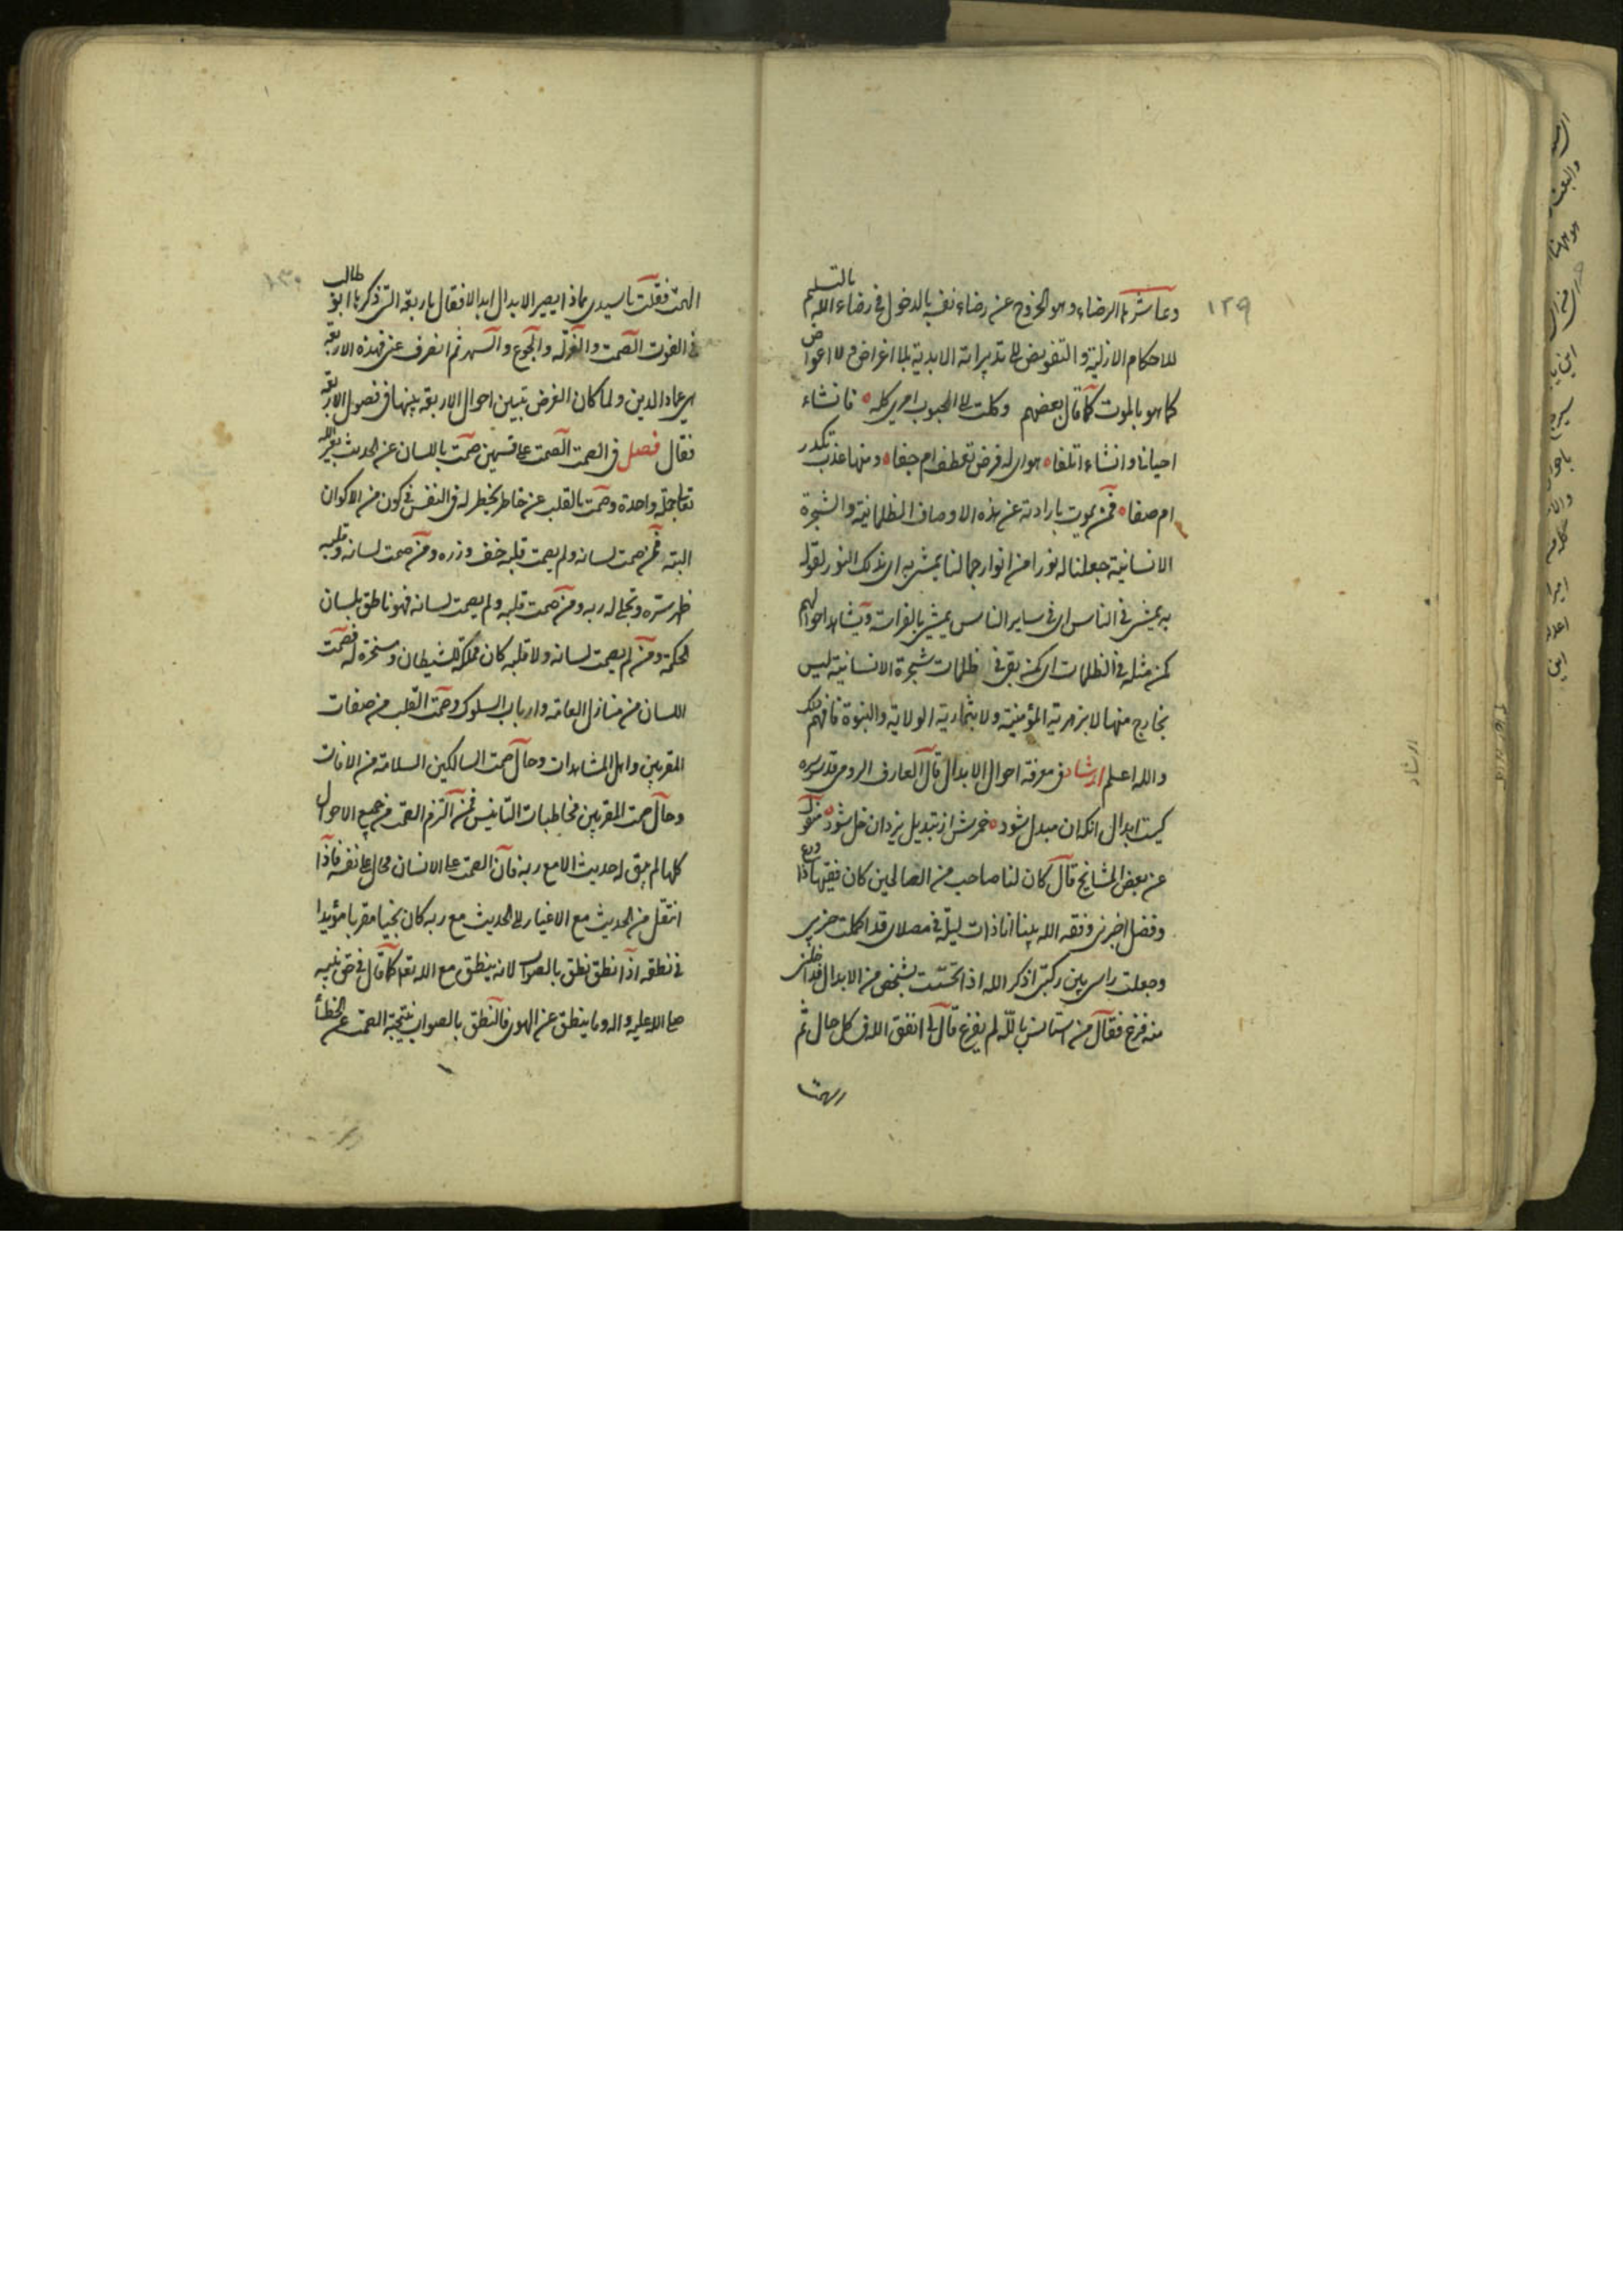 ١٢٩
وعاشرها الرضاء وهو الخروج عن رضاء نفسه بالدخول في رضاء الله بالتسليم
للاحكام الازلية والتفويض الى تدبيراته الابدية بلا اغراض ولا اعواض
كما هو بالموت كما قال بعضهم وكلت الى المحبوب امري كله فانشاء
احيانا وانشاء اتلفا هواى له فرض تعطف ام جفا ومنهل عذب تكدر
ام صفا فمن يموت بارادته عن هذه الاوصاف الظلمانية والشجرة
الانسانية جعلنا له نورا من انوار جمالنا يمشى به اى بذلك النور لقوله
به يمشى في الناس اى في ساير الناس يمشى بالفراسة ويشاهد احوالهم
كمن مثله في الظلمات اى كمن بقى في ظلمات شجرة الانسانية ليس
بخارج منها لا بزهرية المؤمنية ولا بثمارية الولاية والنبوة فافهم
والله اعلم ارشاد في معرفة احوال الابدال قال العارف الرومي قدس سره
كيست ابدال انكه ان مبدل شود خمرش از تبديل يزدان خل شود منقول
عن بعض المشايخ قال كان لنا صاحب من الصالحين كان فقيها ذا ورع
وفضل اخبرنى وفقه الله بينا انا ذات ليلة في مصلاى قد اكملت حزبى
وجعلت راسى بين ركبتى اذكر الله اذا تحسست بشخص من الابدال
منه فزع فقال من استانس بالله لم يفزع قال لى اتفق الله في كل حال ثم
الهمت
١٣٠
الهمت فقلت يا سيدى بماذا يصير الابدال ابدالا فقال باربعة التى ذكرها ابو طالب
في القوت الصمت والعزلة والجوع والسهر ثم انصرف عنى فهذه الاربعة
هى عماد الدين ولما كان الغرض تبيين احوال الاربعة بينها في فصول الاربعة
فقال فصل في الصمت الصمت على قسمين صمت باللسان عن الحديث بغير الله
تعالى جملة واحدة وصمت بالقلب عن خاطر يخطر له في النفس في كون من الاكوان
البتة فمن صمت لسانه ولم يصمت قلبه خف وزره ومن صمت لسانه وقلبه
ظهر سره وتجلى له ربه ومن صمت قلبه ولم يصمت لسانه فهو ناطق بلسان
الحكمة ومن لم يصمت لسانه ولا قلبه كان مملكة للشيطان ومسخرة له فصمت
اللسان من منازل العامة وارباب السلوك وصمت القلب من صفات
المقربين واهل المشاهدات وحال صمت السالكين السلامة من الافات
وحال صمت المقربين مخاطبات التانيس فمن التزم الصمت من جميع الاحوال
كلها لم يبق له حديث الا مع ربه فان الصمت على الانسان محال على نفسه فاذا
انتقل من الحديث مع الاغيار الى الحديث مع ربه كان نجيا مقربا مؤيدا
في نطقه اذا نطق نطق بالصواب لانه ينطق مع الله تعالى كما قال في حق نبيه
صلى الله عليه واله وما ينطق عن الهوى فالنطق بالصواب نتيجة الصمت عن الخطأ
ارشاد